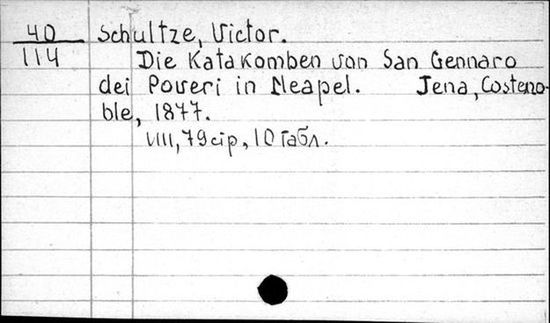 40 Schultze, Victor.
114 Die Katakomben von San Gennaro
dei Poveri in Neapel. Jena, Costeno-
ble, 1877.
VIII, 79 стр., 10 табл.